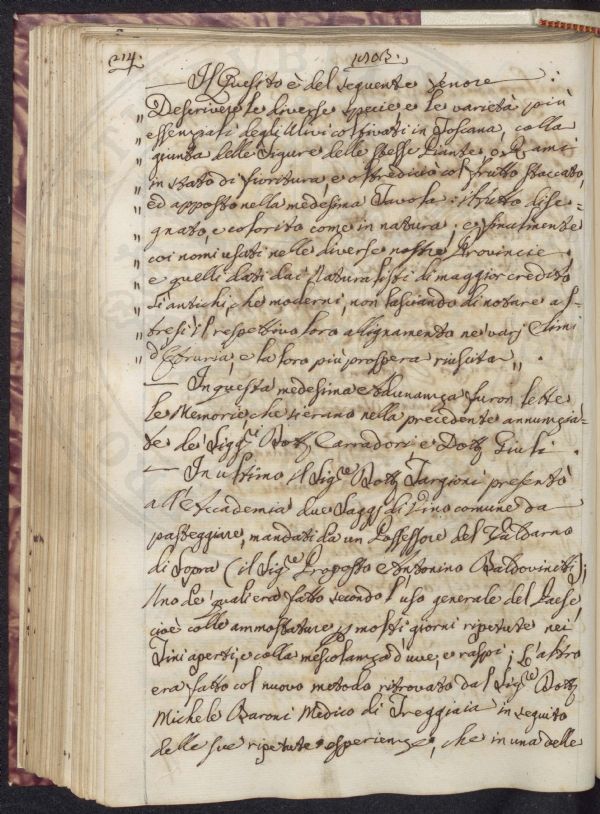 214. 1803.
— Il Quesito è del seguente tenore :
" Descrivere le diverse specie e le varietà più
" essenziali degli Ulivi coltivati in Toscana, colla
" giunta delle Figure delle stesse Piante, o Rami
" in stato di fioritura, e oltredició col frutto staccato,
" ed apposto nella medesima Tavola: il tutto dise=
" gnato, e colorito come in natura; e finalmente
" coi nomi usati nelle diverse nostre Provincie
" e quelli dati dai Naturalisti di maggior credito
" sì antichi, che moderni, non lasciando di notare al=
" tresì il respettivo loro allignamento ne varj Climi
" d'Etruria, e la loro più prospera riuscita „ .
— In questa medesima Adunanza furon lette
le Memorie che si erano nella precedente annunzia=
te de' Sigg.ri Dott. Carradori, e Dott. Giuli .
— In ultimo il Sig.re Dott. Targioni presentò
all'Accademia due Saggi di Vino comune da
pasteggiare, mandati da un Possessore del Valdarno
di Sopra (il Sig.re Proposto Antonino Baldovinetti);
Uno de' quali era fatto secondo l'uso generale del Paese,
cioè colle ammostature p molti giorni ripetute nei
Tini aperti, e colla mescolanza d'uve, e raspi; L'altro
era fatto col nuovo metodo ritrovato dal Sig.re Dott.
Michele Baroni Medico di Treggiaia in seguito
delle sue ripetute esperienze, che in una delle